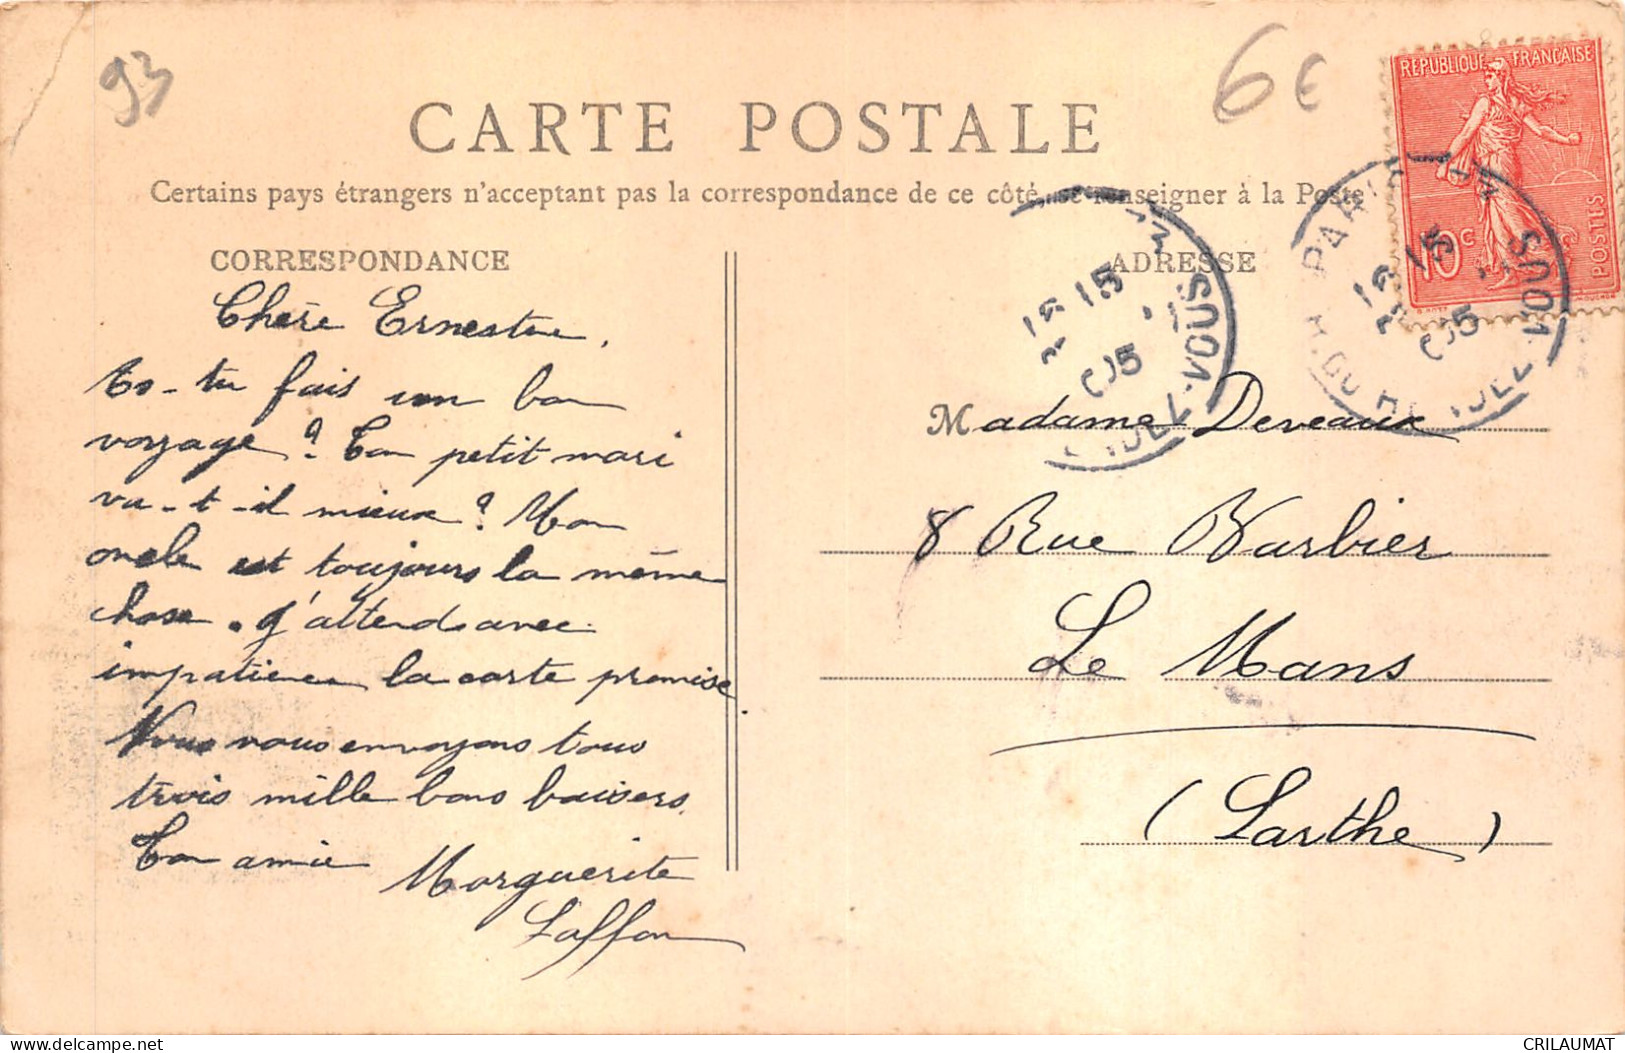 93
6 €
REPUBLIQUE FRANÇAISE
10c
POSTES
CARTE POSTALE
Certains pays étrangers n'acceptant pas la correspondance de ce côté, se renseigner à la Poste
CORRESPONDANCE
Chère Ernestine,
As-tu fais un bon
voyage? Ton petit mari
va-t-il mieux? Mon
oncle est toujours la même
chose. J'attends avec
impatience la carte promise
Nous vous envoyons tous
trois mille bons baisers.
Ton amie Marguerite
Laffon
ADRESSE
Madame Deveaux
8 Rue Barbier
Le Mans
(Sarthe)
PARIS
15
05
CRILAUMAT